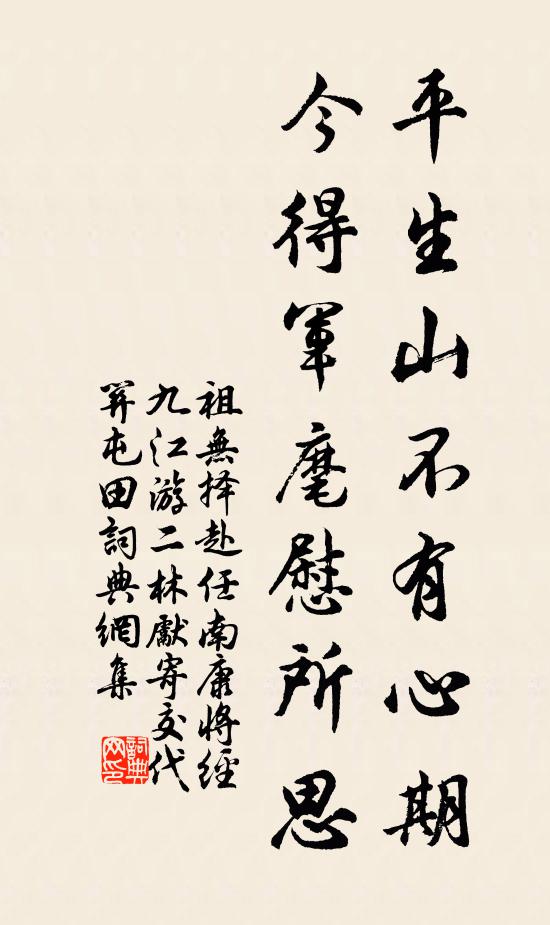 平生山不有心期
今得軍麾慰所思
祖無择赴任南康将經
九江游二林獻寄交代
羿屯田詞典網集
詞典
网印